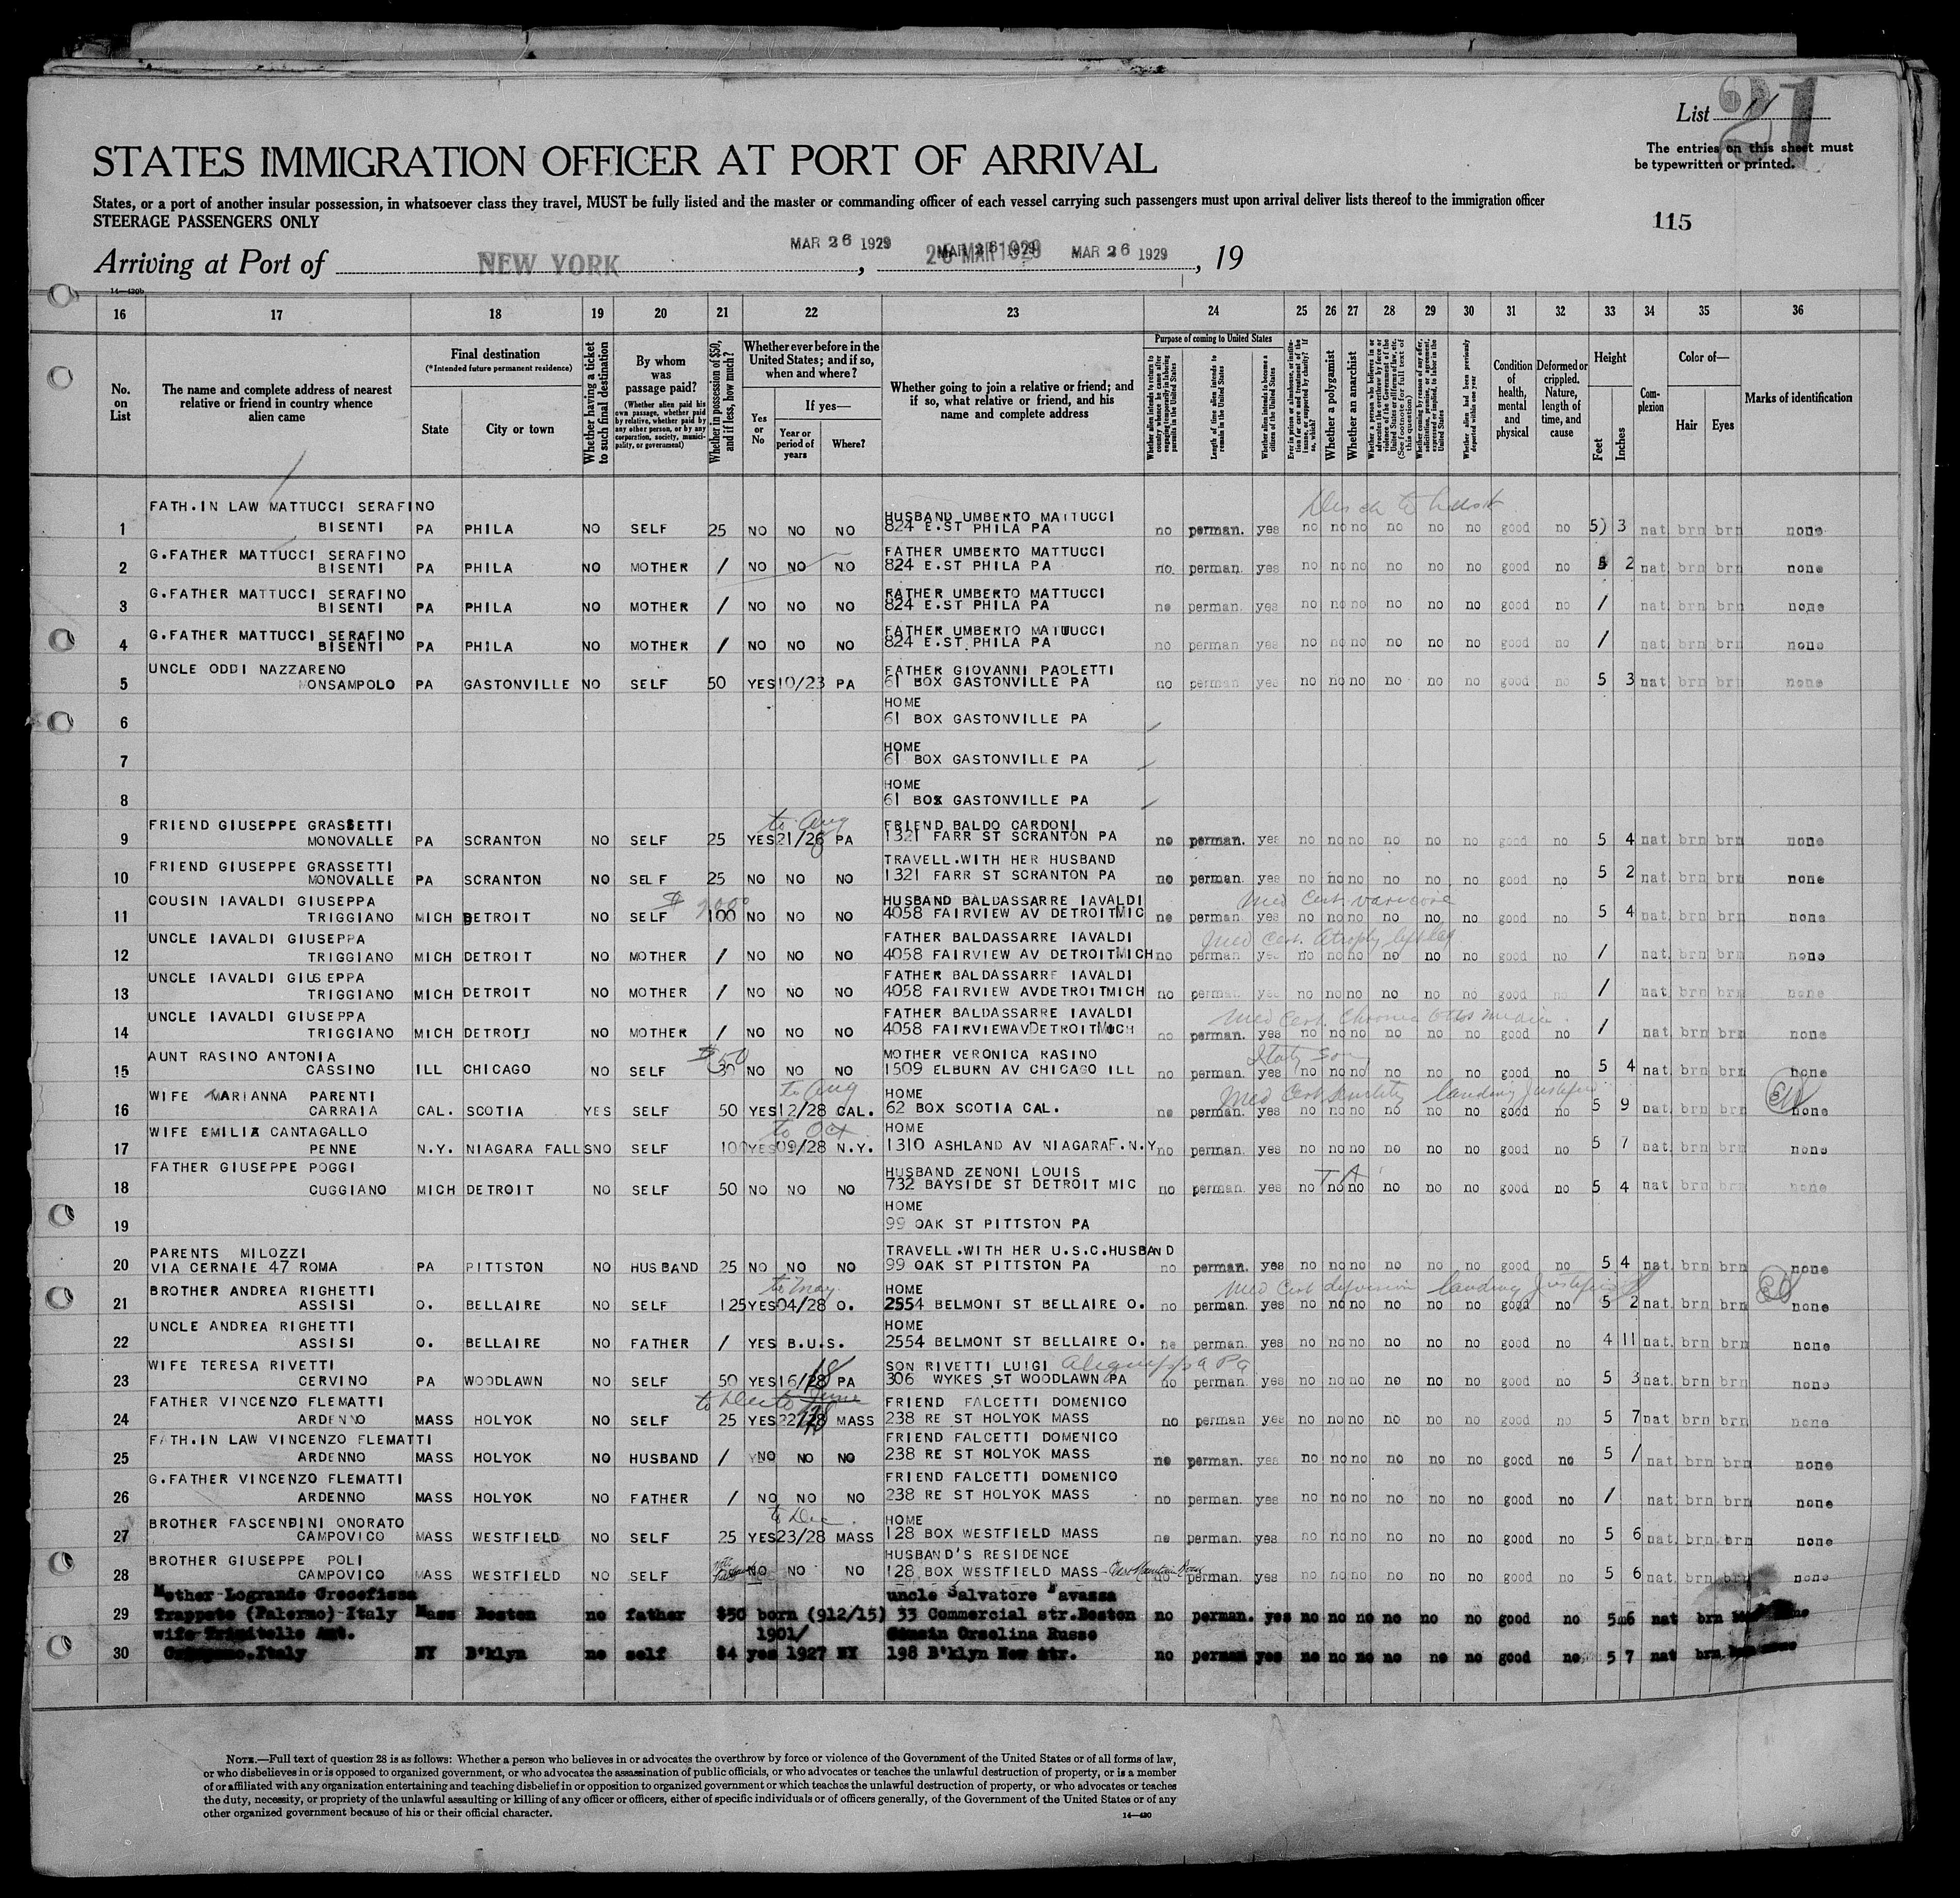 List 11
21
The entries on this sheet must
be typewritten or printed.
STATES IMMIGRATION OFFICER AT PORT OF ARRIVAL
States, or a port of another insular possession, in whatsoever class they travel, MUST be fully listed and the master or commanding officer of each vessel carrying such passengers must upon arrival deliver lists thereof to the immigration officer
STEERAGE PASSENGERS ONLY
115
Arriving at Port of NEW YORK, MAR 26 1929 MAR 26 1929 MAR 26 1929, 19
14—430b
16 17 18 19 20 21 22 23 24 25 26 27 28 29 30 31 32 33 34 35 36
No. on List
The name and complete address of nearest relative or friend in country whence alien came
Final destination
(*Intended future permanent residence)
State City or town
Whether having a ticket to such final destination
By whom was passage paid?
(Whether alien paid his own passage, whether paid by relative, whether paid by any other person, or by any corporation, society, municipality, or government)
Whether in possession of $50, and if less, how much?
Whether ever before in the United States; and if so, when and where?
Yes or No
If yes—
Year or period of years
Where?
Whether going to join a relative or friend; and if so, what relative or friend, and his name and complete address
Purpose of coming to United States
Length of time alien intends to remain in the United States
Whether alien intends to become a citizen of the United States
Whether a polygamist
Whether an anarchist
Whether alien had been previously deported within one year
Condition of health, mental and physical
Deformed or crippled. Nature, length of time, and cause
Height
Feet Inches
Complexion
Color of—
Hair Eyes
Marks of identification
FATH.IN LAW MATTUCCI SERAFINO HUSBAND UMBERTO MATTUCCI
1 BISENTI PA PHILA NO SELF 25 NO NO NO 824 E.ST PHILA PA no perman. yes no no no no no no good no 5 3 nat brn brn none
G.FATHER MATTUCCI SERAFINO FATHER UMBERTO MATTUCCI
2 BISENTI PA PHILA NO MOTHER / NO NO NO 824 E.ST PHILA PA no. perman. yes no no no no no no good no 5 2 nat brn brn none
G.FATHER MATTUCCI SERAFINO FATHER UMBERTO MATTUCCI
3 BISENTI PA PHILA NO MOTHER / NO NO NO 824 E.ST PHILA PA no perman. yes no no no no no no good no / nat brn brn none
G.FATHER MATTUCCI SERAFINO FATHER UMBERTO MATUUCCI
4 BISENTI PA PHILA NO MOTHER / NO NO NO 824 E.ST.PHILA PA no perman yes no no no no no no good no / nat brn brn none
UNCLE ODDI NAZZARENO FATHER GIOVANNI PAOLETTI
5 MONSAMPOLO PA GASTONVILLE NO SELF 50 YES 10/23 PA 61 BOX GASTONVILLE PA no perman. yes no no no no no no good no 5 3 nat brn brn none
HOME
6 61 BOX GASTONVILLE PA
HOME
7 61 BOX GASTONVILLE PA
HOME
8 61 BOX GASTONVILLE PA
to Aug
FRIEND GIUSEPPE GRASSETTI FRIEND BALDO CARDONI
9 MONOVALLE PA SCRANTON NO SELF 25 YES 21/26 PA 1321 FARR ST SCRANTON PA no perman. yes no no no no no no good no 5 4 nat brn brn none
FRIEND GIUSEPPE GRASSETTI TRAVELL.WITH HER HUSBAND
10 MONOVALLE PA SCRANTON NO SELF 25 NO NO NO 1321 FARR ST SCRANTON PA no perman. yes no no no no no no good no 5 2 nat brn brn none
COUSIN IAVALDI GIUSEPPA HUSBAND BALDASSARRE IAVALDI
11 TRIGGIANO MICH DETROIT NO SELF 100 NO NO NO 4058 FAIRVIEW AV DETROITMIC no perman. yes no no no no no no good no 5 4 nat brn brn none
Med Cert. Atrophy left leg
UNCLE IAVALDI GIUSEPPA FATHER BALDASSARRE IAVALDI
12 TRIGGIANO MICH DETROIT NO MOTHER / NO NO NO 4058 FAIRVIEW AV DETROITMICH no perman yes no no no no no no good no / nat brn brn none
UNCLE IAVALDI GIUSEPPA FATHER BALDASSARRE IAVALDI
13 TRIGGIANO MICH DETROIT NO MOTHER / NO NO NO 4058 FAIRVIEW AVDETROITMICH no perman yes no no no no no no good no / nat brn brn none
Med Cert. Chronic Otitis media.
UNCLE IAVALDI GIUSEPPA FATHER BALDASSARRE IAVALDI
14 TRIGGIANO MICH DETROTT NO MOTHER / NO NO NO 4058 FAIRVIEWAVDETROITMICH no perman. yes no no no no no no good no / nat brn brn none
$50
AUNT RASINO ANTONIA MOTHER VERONICA RASINO
15 CASSINO ILL CHICAGO NO SELF 30 NO NO NO 1509 ELBURN AV CHICAGO ILL no perman. yes no no no no no no good no 5 4 nat brn brn none
to Aug Med Cert senility landing justified
WIFE MARIANNA PARENTI HOME
16 CARRAIA CAL. SCOTIA YES SELF 50 YES 12/28 CAL. 62 BOX SCOTIA CAL. no perman. yes no no no no no no good no 5 9 nat brn brn none
to Oct
WIFE EMILIA CANTAGALLO HOME
17 PENNE N.Y. NIAGARA FALLS NO SELF 100 YES 09/28 N.Y. 1310 ASHLAND AV NIAGARAF.N.Y. no perman. yes no no no no no no good no 5 7 nat brn brn none
FATHER GIUSEPPE POGGI HUSBAND ZENONI LOUIS
18 CUGGIANO MICH DETROIT NO SELF 50 NO NO NO 732 BAYSIDE ST DETROIT MIC no perman. yes no no no no no no good no 5 4 nat brn brn none
HOME
19 99 OAK ST PITTSTON PA
PARENTS MILOZZI TRAVELL.WITH HER U.S.C.HUSBAND
20 VIA CERNAIE 47 ROMA PA PITTSTON NO HUSBAND 25 NO NO NO 99 OAK ST PITTSTON PA no perman. yes no no no no no no good no 5 4 nat brn brn none
to May Med Cert landing justified
BROTHER ANDREA RIGHETTI HOME
21 ASSISI O. BELLAIRE NO SELF 125 YES 04/28 O. 2554 BELMONT ST BELLAIRE O. no perman. yes no no no no no no good no 5 2 nat. brn brn none
UNCLE ANDREA RIGHETTI HOME
22 ASSISI O. BELLAIRE NO FATHER / YES B.U.S. 2554 BELMONT ST BELLAIRE O. no perman. yes no no no no no no good no 4 11 nat. brn brn none
WIFE TERESA RIVETTI SON RIVETTI LUIGI Aliquippa Pa
23 CERVINO PA WOODLAWN NO SELF 50 YES 16/28 PA 306 WYKES ST WOODLAWN PA no perman. yes no no no no no no good no 5 3 nat. brn brn none
FATHER VINCENZO FLEMATTI FRIEND FALCETTI DOMENICO
24 ARDENNO MASS HOLYOK NO SELF 25 YES 22/28 MASS 238 RE ST HOLYOK MASS no perman yes no no no no no no good no 5 7 nat brn brn none
FATH.IN LAW VINCENZO FLEMATTI FRIEND FALCETTI DOMENICO
25 ARDENNO MASS HOLYOK NO HUSBAND / NO NO NO 238 RE ST HOLYOK MASS no perman. yes no no no no no no good no 5 / nat brn brn none
G.FATHER VINCENZO FLEMATTI FRIEND FALCETTI DOMENICO
26 ARDENNO MASS HOLYOK NO FATHER / NO NO NO 238 RE ST HOLYOK MASS no perman. yes no no no no no no good no / nat brn brn none
to Dec.
BROTHER FASCENDINI ONORATO HOME
27 CAMPOVICO MASS WESTFIELD NO SELF 25 YES 23/28 MASS 128 BOX WESTFIELD MASS no perman. yes no no no no no no good no 5 6 nat. brn brn none
BROTHER GIUSEPPE POLI HUSBAND'S RESIDENCE
28 CAMPOVICO MASS WESTFIELD NO SELF NO NO NO 128 BOX WESTFIELD MASS no perman. yes no no no no no no good no 5 6 nat. brn brn none
Mother Logrande Crocefissa uncle Salvatore
29 Trappeto (Palermo) Italy Mass Boston no father $50 born (912/15) 33 Commercial str.Boston no perman. yes no no no no no no good no 5 6 nat brn
wife 1901/ Cousin Orselina Russo
30 Italy NY B'klyn no self $4 yes 1927 NY 198 B'klyn New Str. no perman yes no no no no no no good no 5 7 nat brn
NOTE.—Full text of question 28 is as follows: Whether a person who believes in or advocates the overthrow by force or violence of the Government of the United States or of all forms of law,
or who disbelieves in or is opposed to organized government, or who advocates the assassination of public officials, or who advocates or teaches the unlawful destruction of property, or is a member
of or affiliated with any organization entertaining and teaching disbelief in or opposition to organized government or which teaches the unlawful destruction of property, or who advocates or teaches
the duty, necessity, or propriety of the unlawful assaulting or killing of any officer or officers, either of specific individuals or of officers generally, of the Government of the United States or of any
other organized government because of his or their official character.
14—430